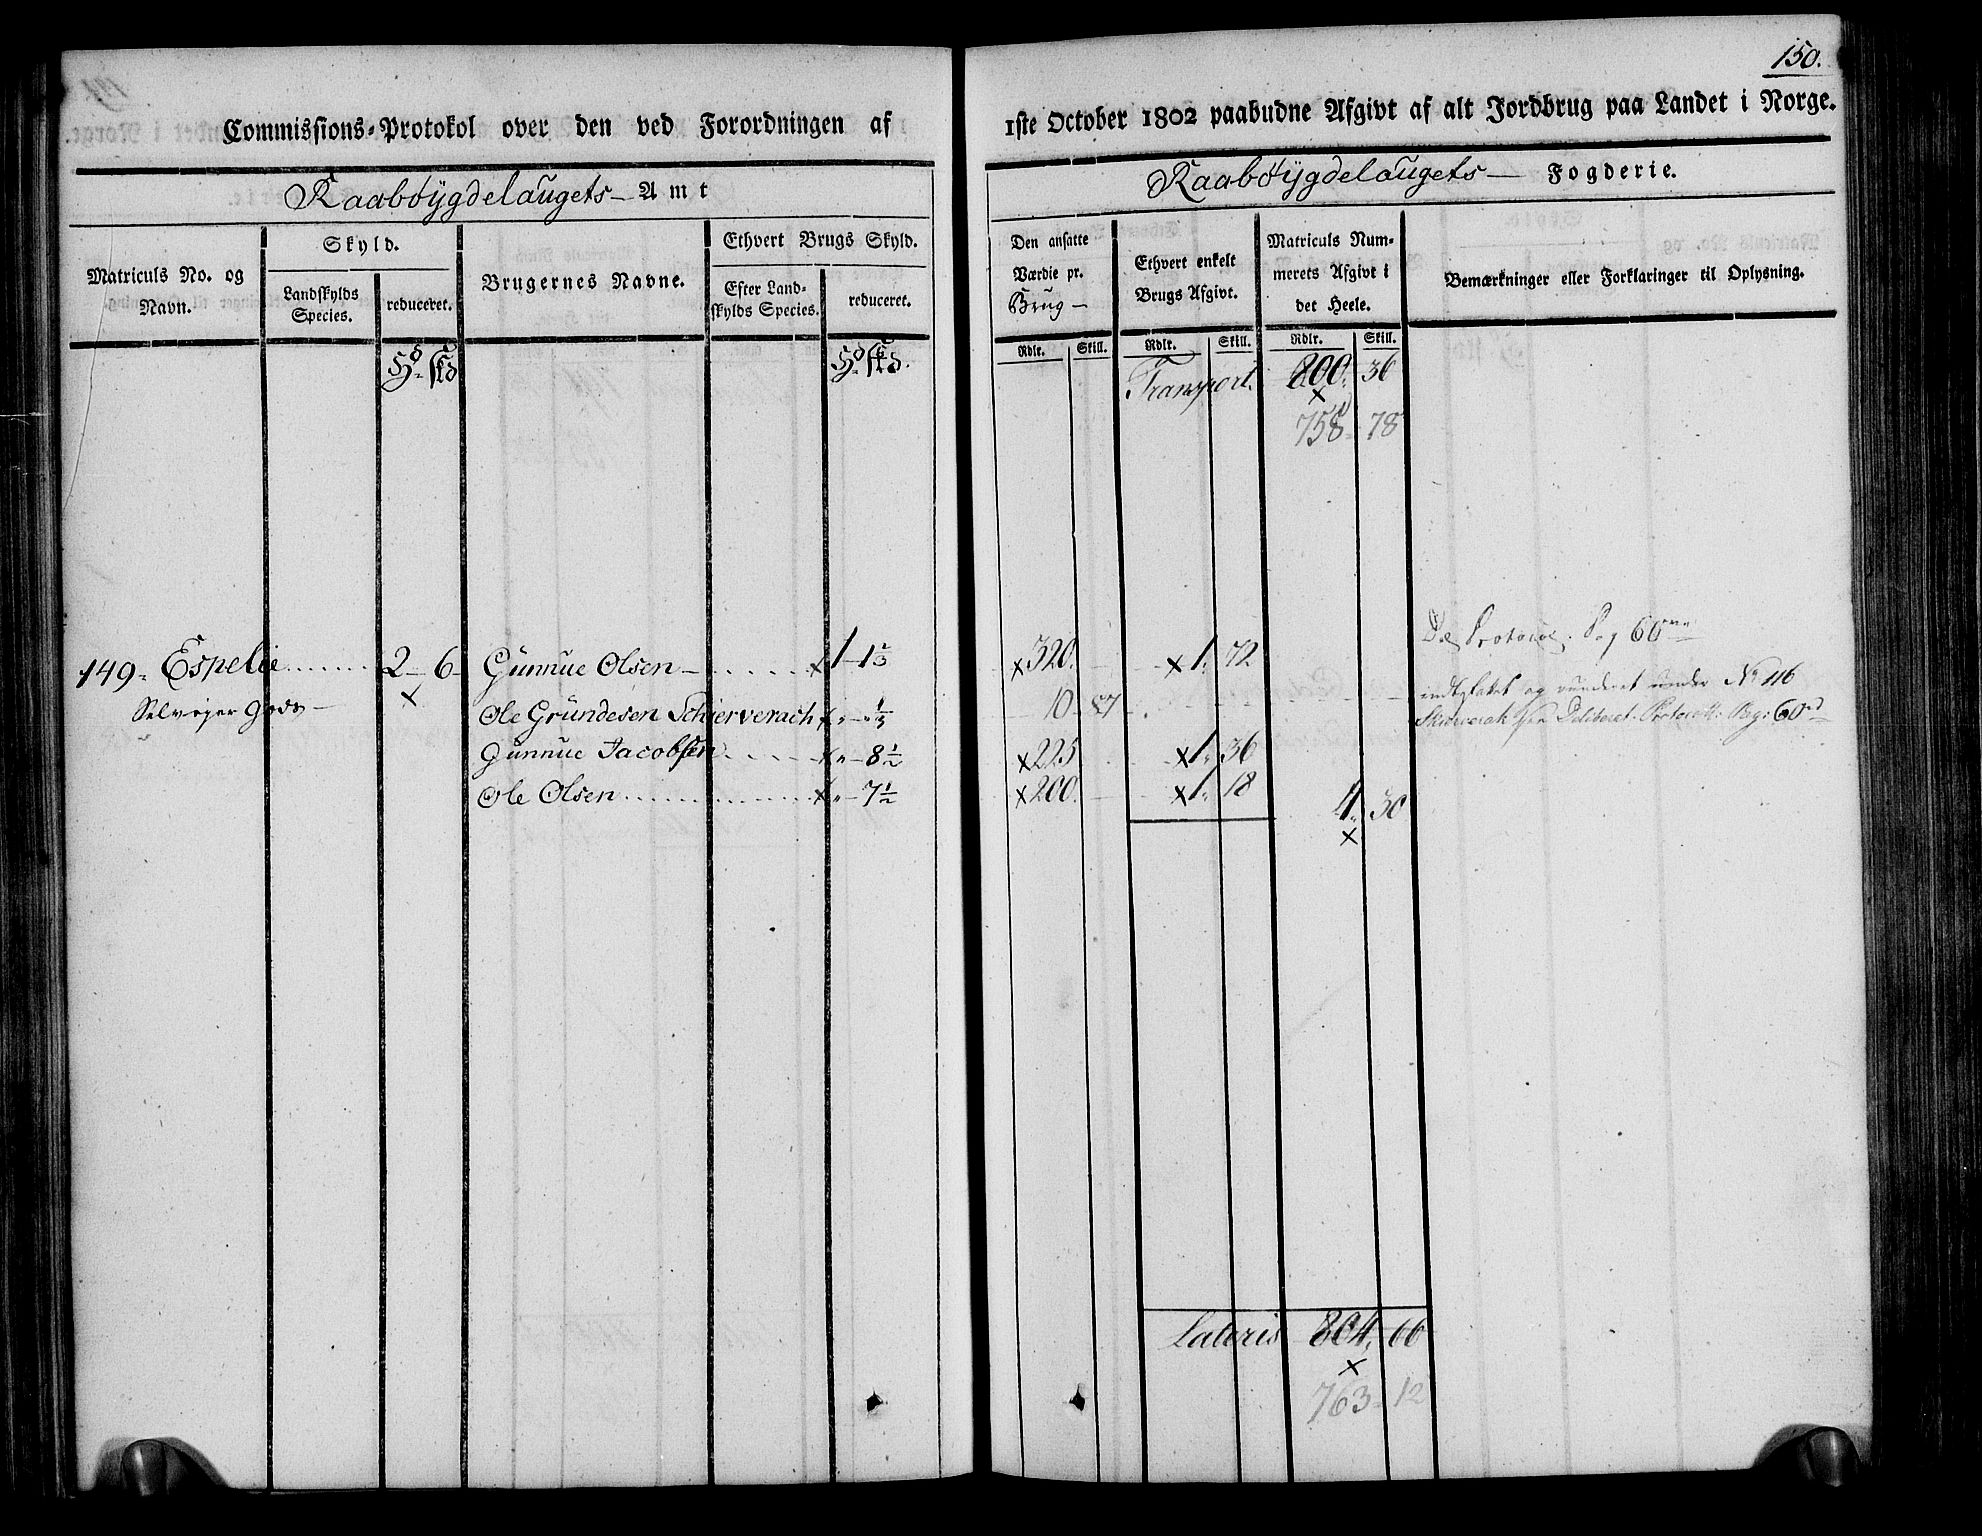 150.
Commissions-Protokol over den ved Forordningen af 1ste October 1802 paabudne Afgivt af alt Jordbrug paa Landet i Norge.
Raabøygdelaugets Amt
Raabøygdelaugets Fogderie.
Matriculs No. og Navn.
Skyld.
Landskylds Species.
reduceret.
Brugernes Navne.
Ethvert Brugs Skyld.
Efter Landskylds Species.
reduceret.
Den ansatte Værdie pr. Brug
Ethvert enkelt Brugs Afgivt.
Matriculs Nummerets Afgivt i det Heele.
Bemærkninger eller Forklaringer til Oplysning.
Rdlr. Skill. Rdlr. Skill. Rdlr. Skill.
Transport. 800. 36
758 - 78
149. Espelie 2 - 6 Gunnue Olsen 1 - 1 2/3 320. 1. 72
Ole Grundesen Schierverach " - " 1/3 10 - 87
Gunnue Jacobsen " - 8 1/2 225 1. 36
Ole Olsen " - 7 1/2 200. 1. 18 4. 30
Pag 60
og under No 116
Deliberat. Protocoll: Pag: 60
Lateris 804. 66
763 - 12